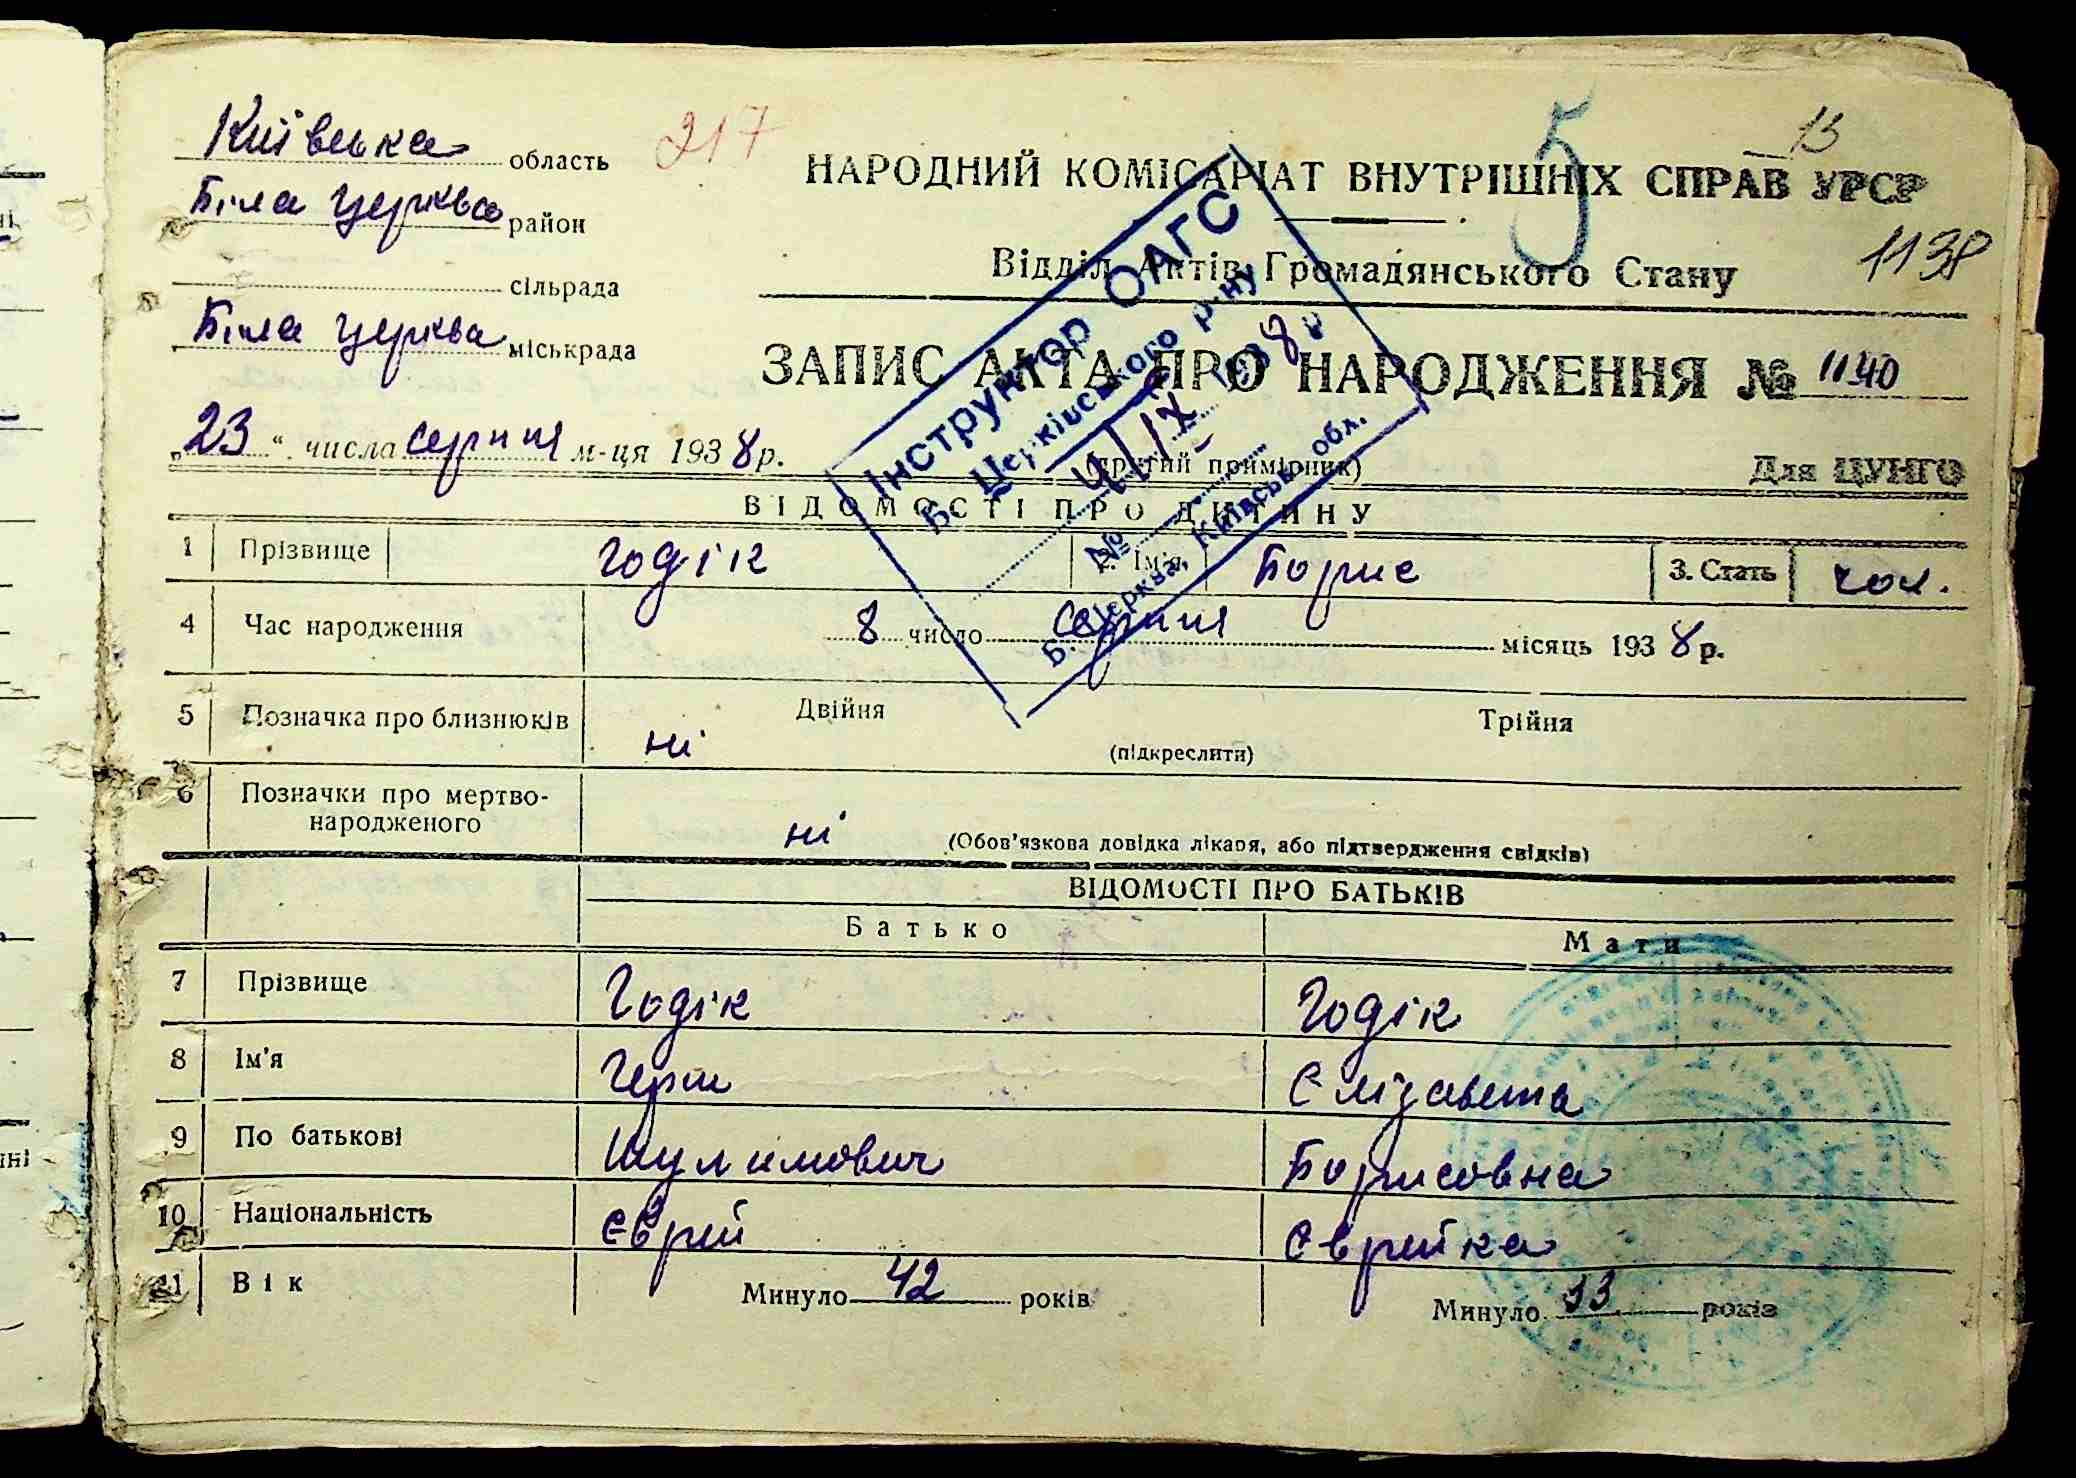 Київська область
217
13
НАРОДНИЙ КОМІСАРІАТ ВНУТРІШНІХ СПРАВ УРСР
5
Біла Церква район
Відділ Актів Громадянського Стану
1138
сільрада
Біла Церква міськрада
ЗАПИС АКТА ПРО НАРОДЖЕННЯ № 1140
„23“ числа серпня м-ця 1938 р.
(другий примірник)
Для ЦУНГО
Інструктор ОАГС
Б. Церківського р-ну
4/IX 1938 р
№
Б. Церква, Київськ. обл.
ВІДОМОСТІ ПРО ДИТИНУ
1 Прізвище Годік 2. Ім'я Борис 3. Стать чол.
4 Час народження 8 число серпня місяць 1938 р.
5 Позначка про близнюків ні Двійня Трійня
(підкреслити)
6 Позначки про мертво-
народженого ні (Обов'язкова довідка лікаря, або підтвердження свідків)
ВІДОМОСТІ ПРО БАТЬКІВ
Батько Мати
7 Прізвище Годік Годік
8 Ім'я Герш Єлізавета
9 По батькові Шулимович Борисовна
10 Національність єврей єврейка
11 Вік Минуло 42 років Минуло 33 років